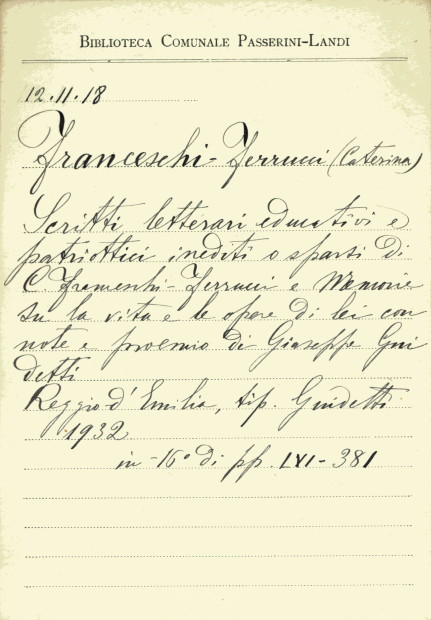 BIBLIOTECA COMUNALE PASSERINI-LANDI
12.11.18
Franceschi-Ferrucci (Caterina)
Scritti letterari educativi e
patriottici inediti o sparsi di
C. Franceschi-Ferrucci e Memorie
su la vita e le opere di lei con
note e proemio di Giuseppe Gui
detti
Reggio d'Emilia, tip. Guidetti
1932
in-16° di pp. LVI-381